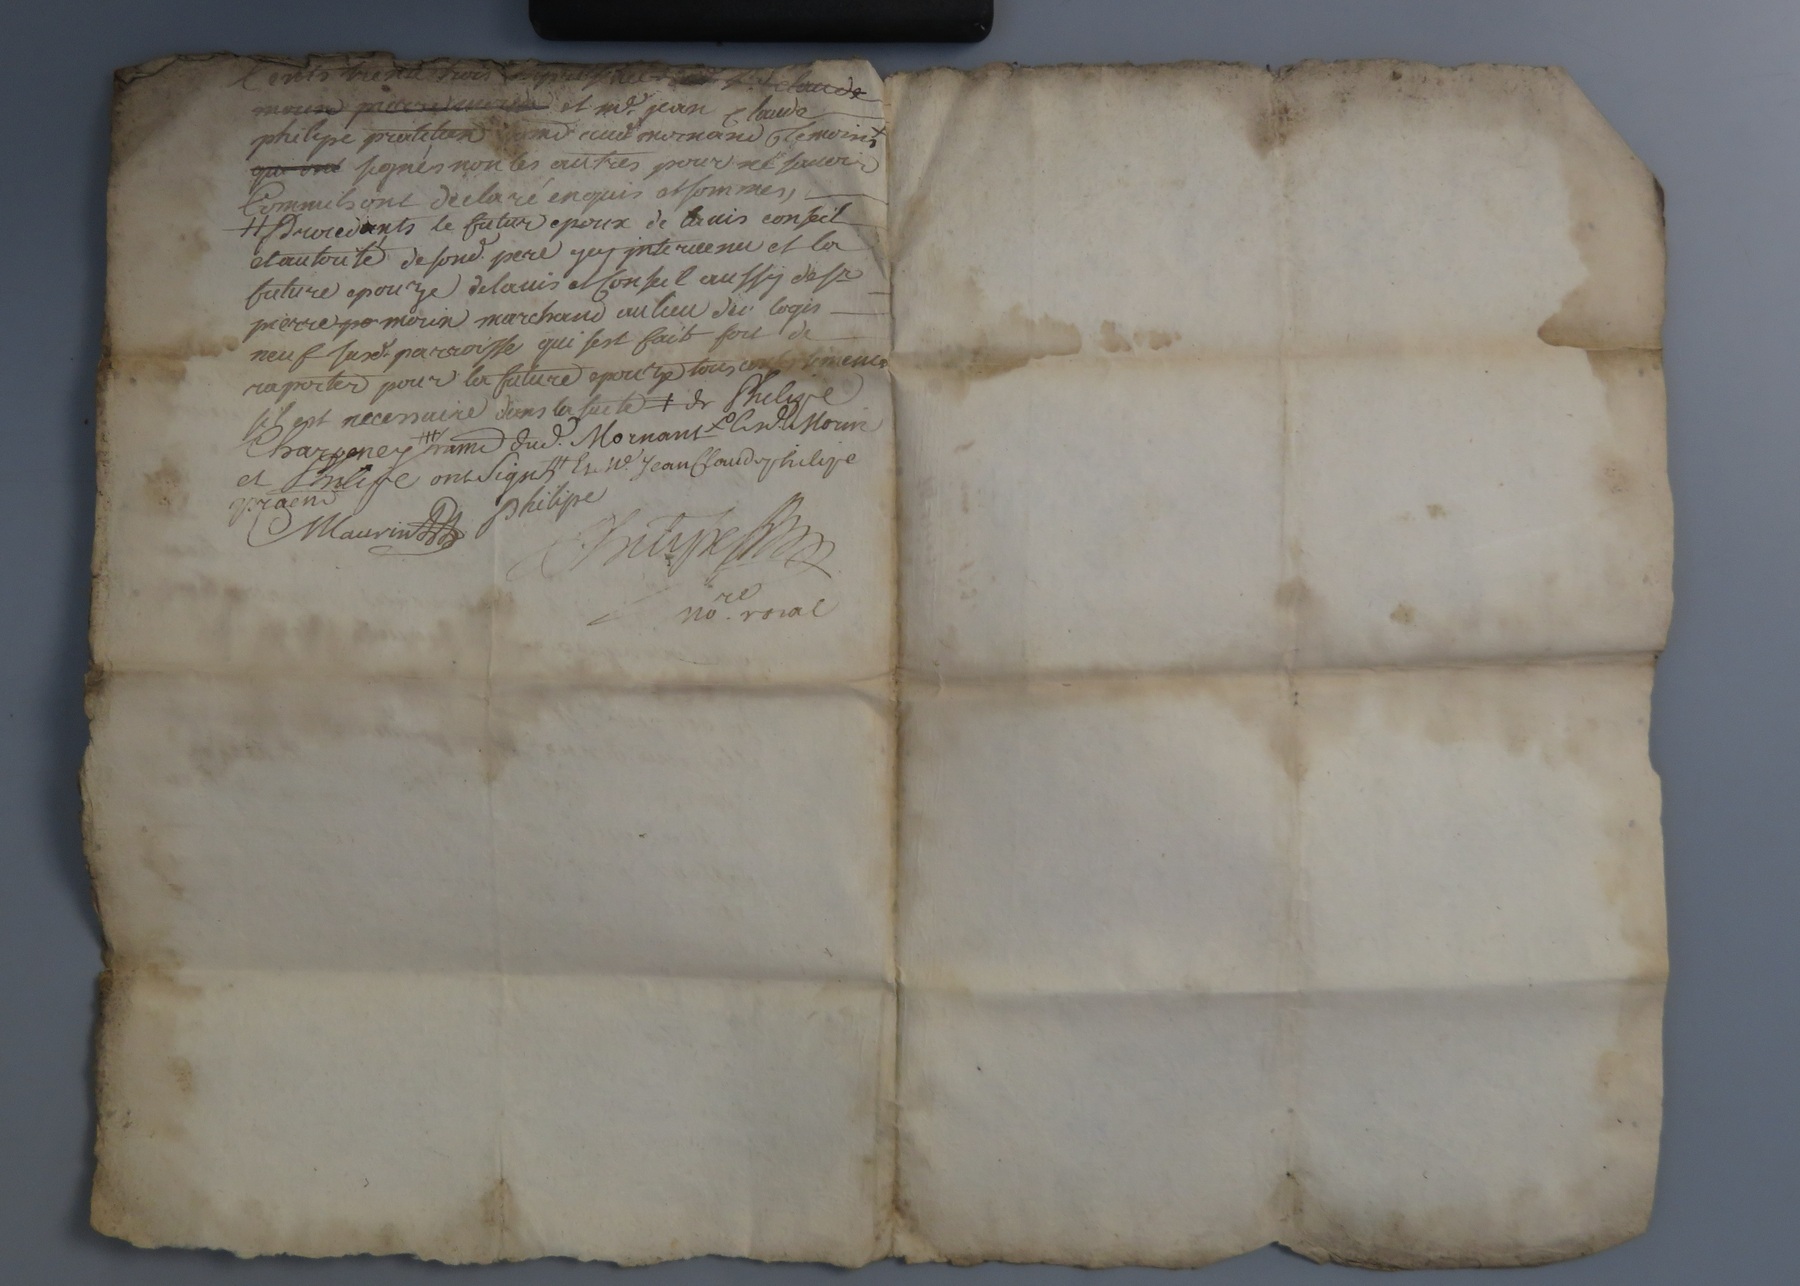 et md. jean Claude
philipe praticien aud. mornand temoins
qui ont signés non les autres pour ne sçavoir
Comm'ils ont declaré enquis et sommes,
# Procedants le futur epoux de lavis conseil
et autorité de sond. pere ycy intervenu et la
future epouze delavis et Conseil aussy de sr.
pierre morin marchand au lieu du logis
neuf susd. parroisse qui s'est fait fort de
raporter pour la future epouze tous
s'il est necessaire dans la suite + dr Philipe
Charveney dud. Mornant Morin
et Philipe ont signé # Et Me. Jean Claude philipe
Maurin philipe
Philipe
nore. roial